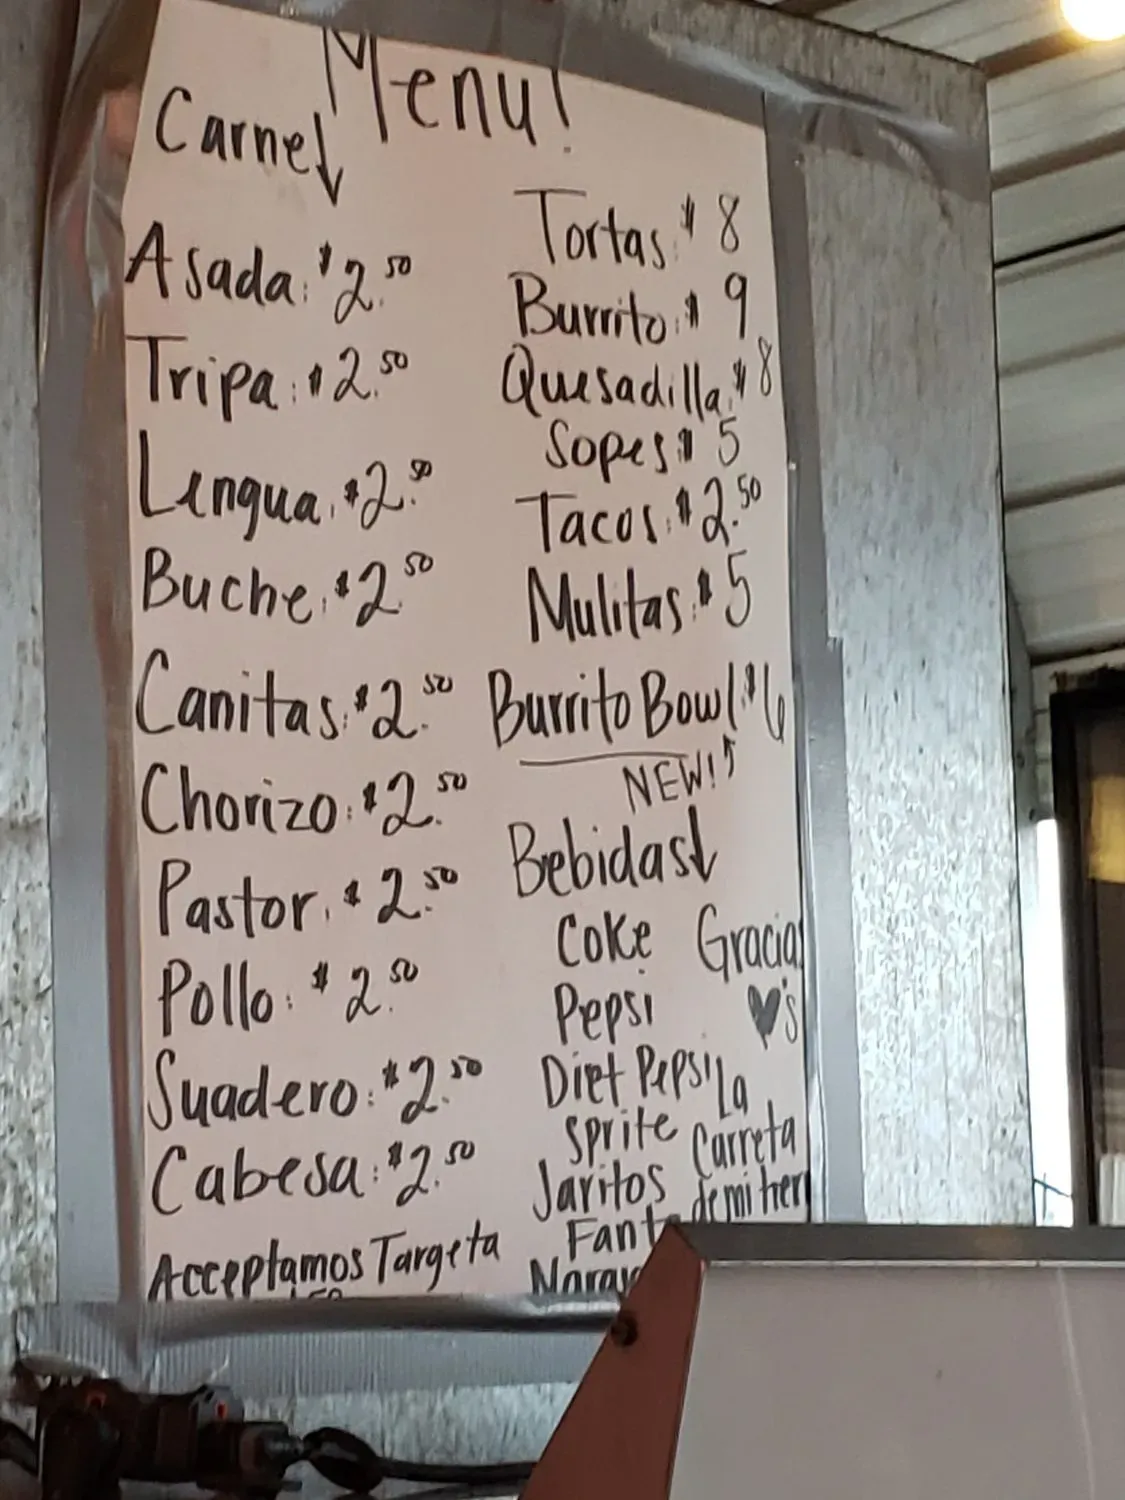 Menu!
Carne↓
Asada: $2.50
Tripa: $2.50
Lengua: $2.50
Buche: $2.50
Canitas: $2.50
Chorizo: $2.50
Pastor: $2.50
Pollo: $2.50
Suadero: $2.50
Cabesa: $2.50
Acceptamos Targeta
Tortas: $8
Burrito: $9
Quesadilla: $8
Sopes: $5
Tacos: $2.50
Mulitas: $5
Burrito Bowl: $6
NEW!↑
Bebidas↓
Coke
Pepsi
Diet Pepsi
Sprite
Jaritos
Gracias
♥'s
La
Carreta
de mi